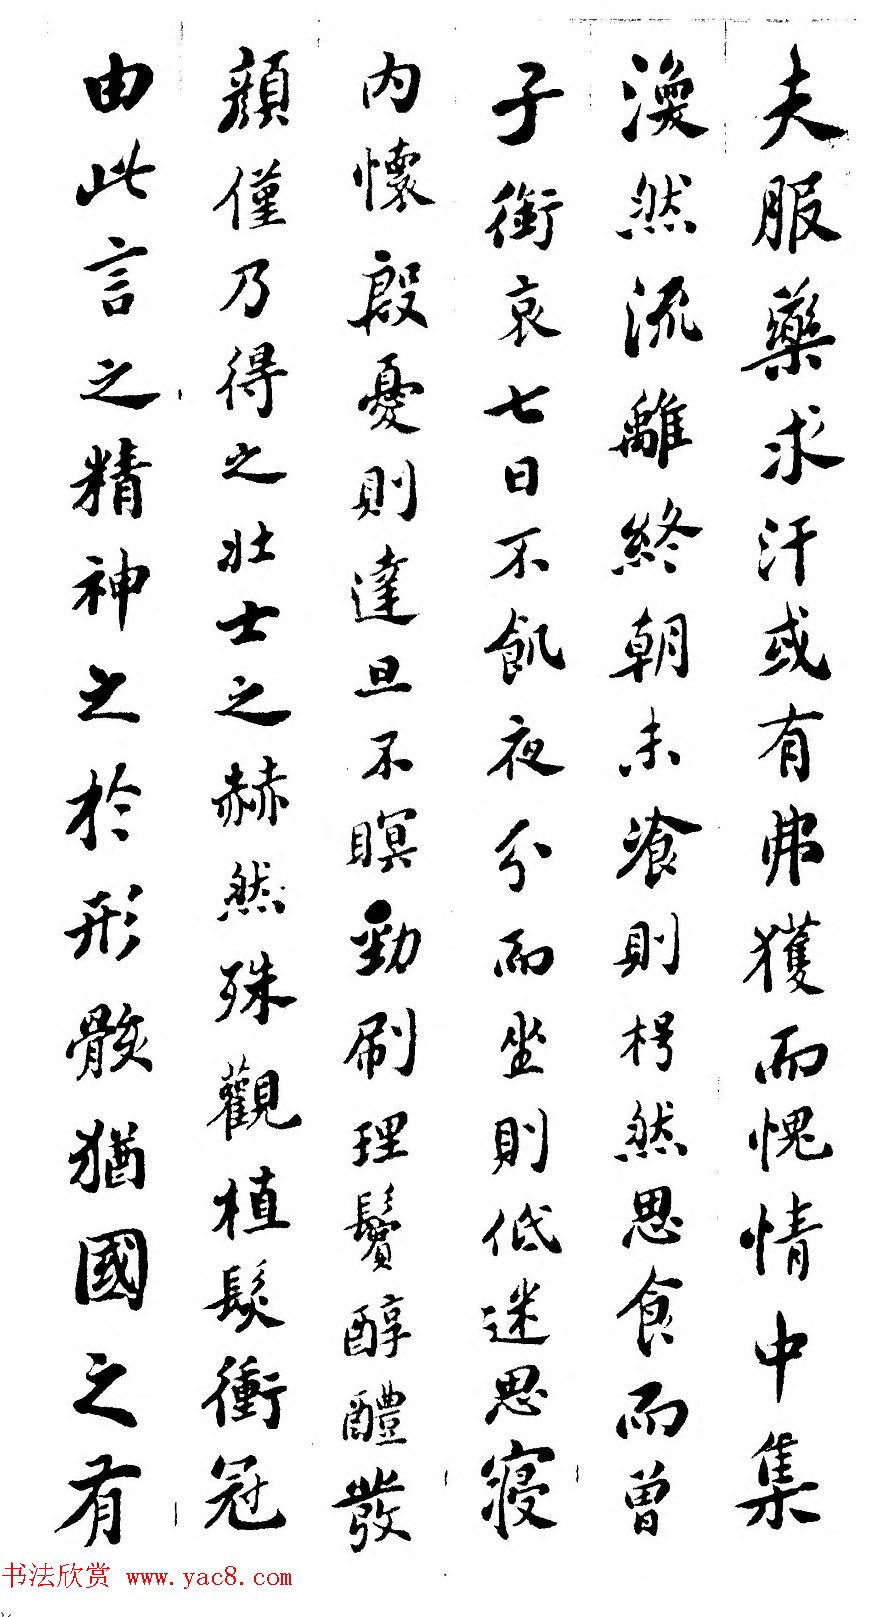 夫服藥求汗或有弗獲而愧情中集
渙然流離終朝未飡則枵然思食而曾
子銜哀七日不飢夜分而坐則低迷思寢
内懷殷憂則達旦不瞑勁刷理鬢醇醴發
顔僅乃得之壯士之赫然殊觀植髮衝冠
由此言之精神之於形骸猶國之有
书法欣赏 www.yac8.com